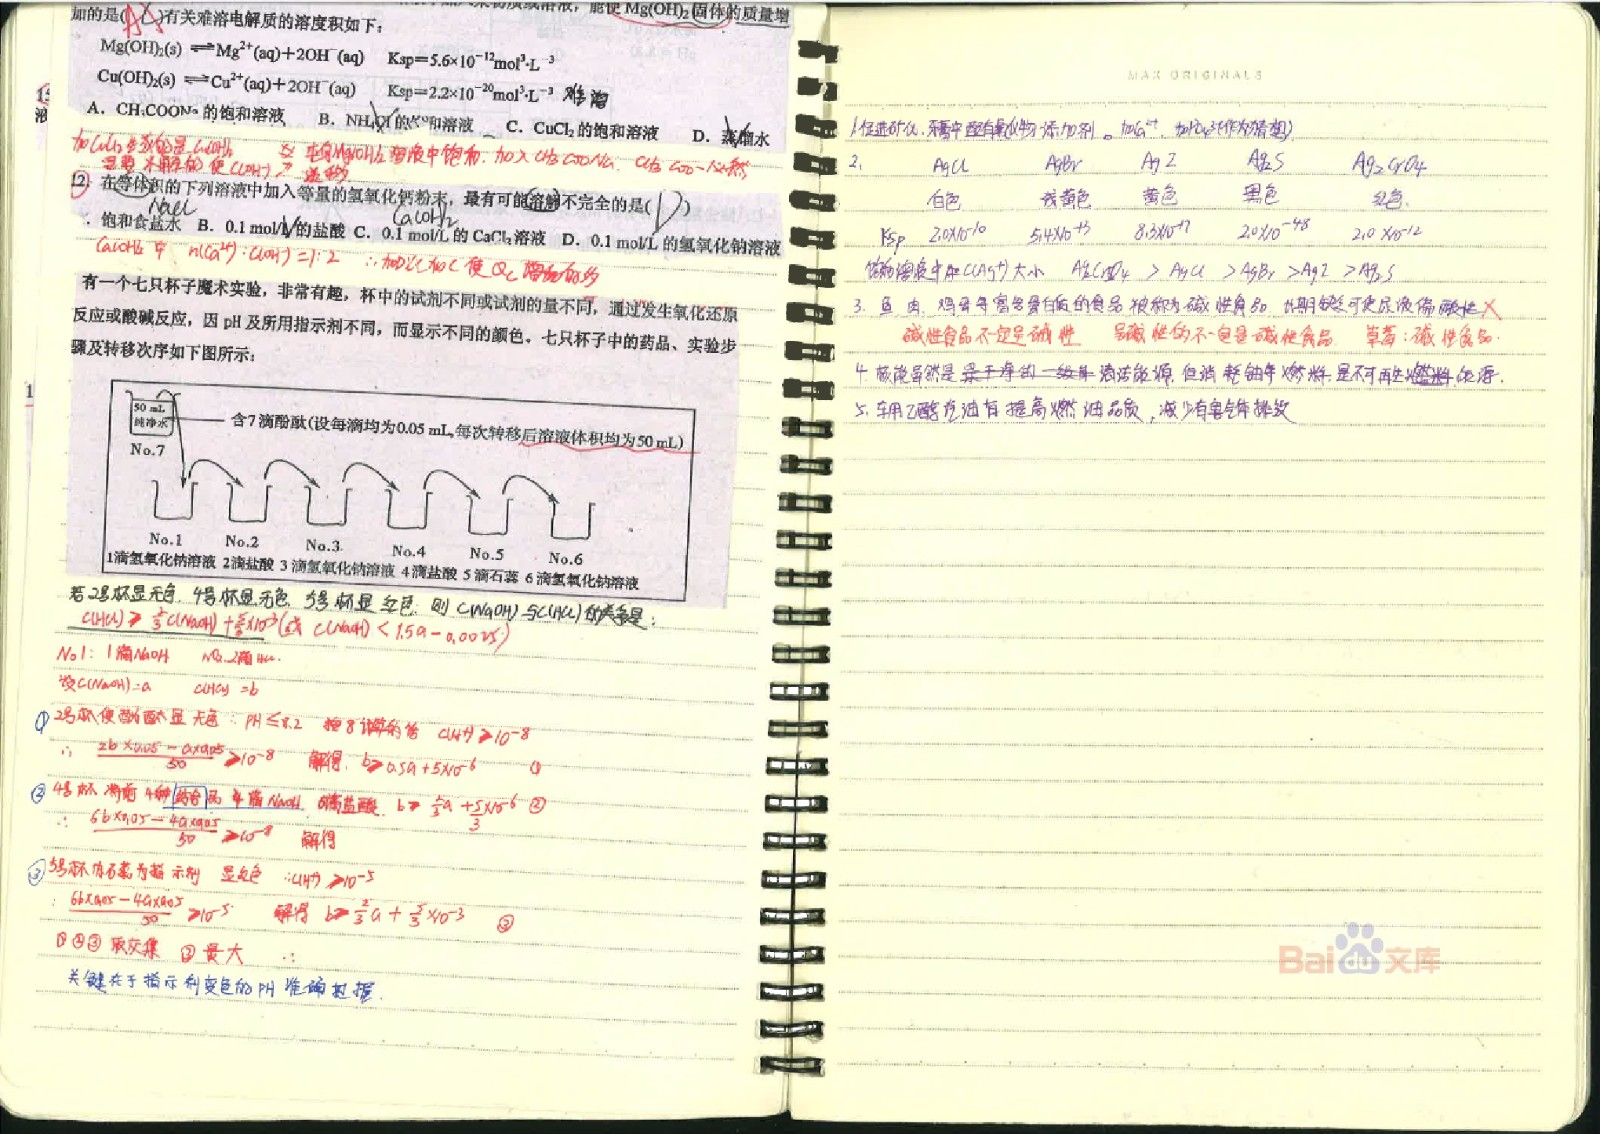 能使Mg(OH)₂固体的质量增
加的是( A )有关难溶电解质的溶度积如下:
Mg(OH)₂(s) ⇌Mg²⁺(aq)+2OH⁻(aq) Ksp=5.6×10⁻¹²mol³·L⁻³
Cu(OH)₂(s) ⇌Cu²⁺(aq)+2OH⁻(aq) Ksp=2.2×10⁻²⁰mol³·L⁻³ 难溶
A. CH₃COONa 的饱和溶液 B. NH₄Cl 的饱和溶液 C. CuCl₂ 的饱和溶液 D. 蒸馏水
12. 在等体积的下列溶液中加入等量的氢氧化钙粉末，最有可能溶解不完全的是( D )
NaCl Ca(OH)₂
. 饱和食盐水 B. 0.1 mol/L 的盐酸 C. 0.1 mol/L 的 CaCl₂ 溶液 D. 0.1 mol/L 的氢氧化钠溶液
Ca(OH)₂ 中 n(Ca²⁺):C(OH⁻)=1:2
有一个七只杯子魔术实验，非常有趣，杯中的试剂不同或试剂的量不同，通过发生氧化还原
反应或酸碱反应，因 pH 及所用指示剂不同，而显示不同的颜色。七只杯子中的药品、实验步
骤及转移次序如下图所示:
50 mL
纯净水
含7滴酚酞(设每滴均为0.05 mL,每次转移后溶液体积均为50 mL)
No.7
No.1 No.2 No.3 No.4 No.5 No.6
1滴氢氧化钠溶液 2滴盐酸 3滴氢氧化钠溶液 4滴盐酸 5滴石蕊 6滴氢氧化钠溶液
若2号杯显无色，4号杯显无色，5号杯显红色，则 C(NaOH)与C(HCl)的关系是:
C(HCl) ≥ ⅔C(NaOH)+5/3×10⁻³(或 C(NaOH) < 1.5a-0.0025)
No1: 1滴NaOH No.2 2滴HCl.
设C(NaOH)=a C(HCl)=b
① 2号杯使酚酞显无色: PH≤8.2 按8计算的话 C(H⁺)≥10⁻⁸
∴ (2b×0.05-a×0.05)/50 ≥10⁻⁸ 解得, b≥0.5a+5×10⁻⁶ ①
② 4号杯 4滴NaOH 6滴盐酸 b≥⅔a+5/3×10⁻⁶ ②
∴ (6b×0.05-4a×0.05)/50 ≥10⁻⁸ 解得
③ 5号杯 石蕊为指示剂 显红色 ∴C(H⁺)≥10⁻⁵
∴ (6b×0.05-4a×0.05)/50 ≥10⁻⁵ 解得 b≥⅔a+5/3×10⁻³ ③
①②③ 取交集 ③最大 ∴
关键在于指示剂变色的PH 准确把握.
MAX ORIGINALS
1.促进矿化. 牙膏中配有氟化物添加剂。
2. AgCl AgBr AgI Ag₂S Ag₂CrO₄
白色 浅黄色 黄色 黑色 红色.
Ksp 2.0×10⁻¹⁰ 5.4×10⁻¹³ 8.3×10⁻¹⁷ 2.0×10⁻⁴⁸ 2.0×10⁻¹²
饱和溶液中 C(Ag⁺)大小 Ag₂CrO₄ > AgCl > AgBr > AgI > Ag₂S
3. 鱼、肉、鸡蛋等富含蛋白质的食品被称为碱性食品 长期缺乏可使尿液偏酸性 ×
碱性食品不一定是碱性 显碱性的不一定是碱性食品. 草莓:碱性食品.
4. 核能虽然是清洁能源,但消耗铀等燃料,是不可再生能源.
5. 车用乙醇汽油有提高燃油品质,减少有害气体排放
Bai du 文库